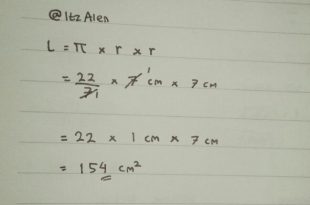 @Itz Alen
L = π x r x r
= 22/7 1 x 7 1 cm x 7 cm
= 22 x 1 cm x 7 cm
= 154 cm²